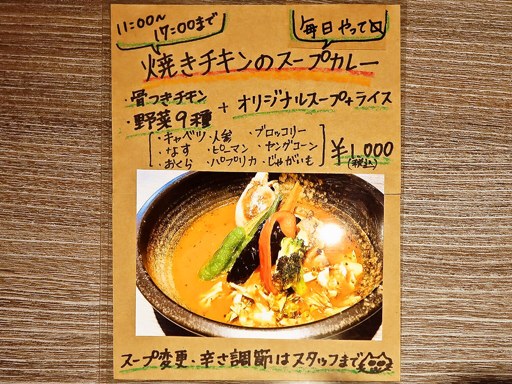 11:00〜
17:00まで
毎日やってロ
焼きチキンのスープカレー
・骨つきチキン
・野菜9種
+ オリジナルスープ+ライス
・キャベツ ・人参 ・ブロッコリー
・なす ・ピーマン ・ヤングコーン
・おくら ・パプリカ ・じゃがいも
¥1,000
(税込)
スープ変更・辛さ調節はスタッフまで